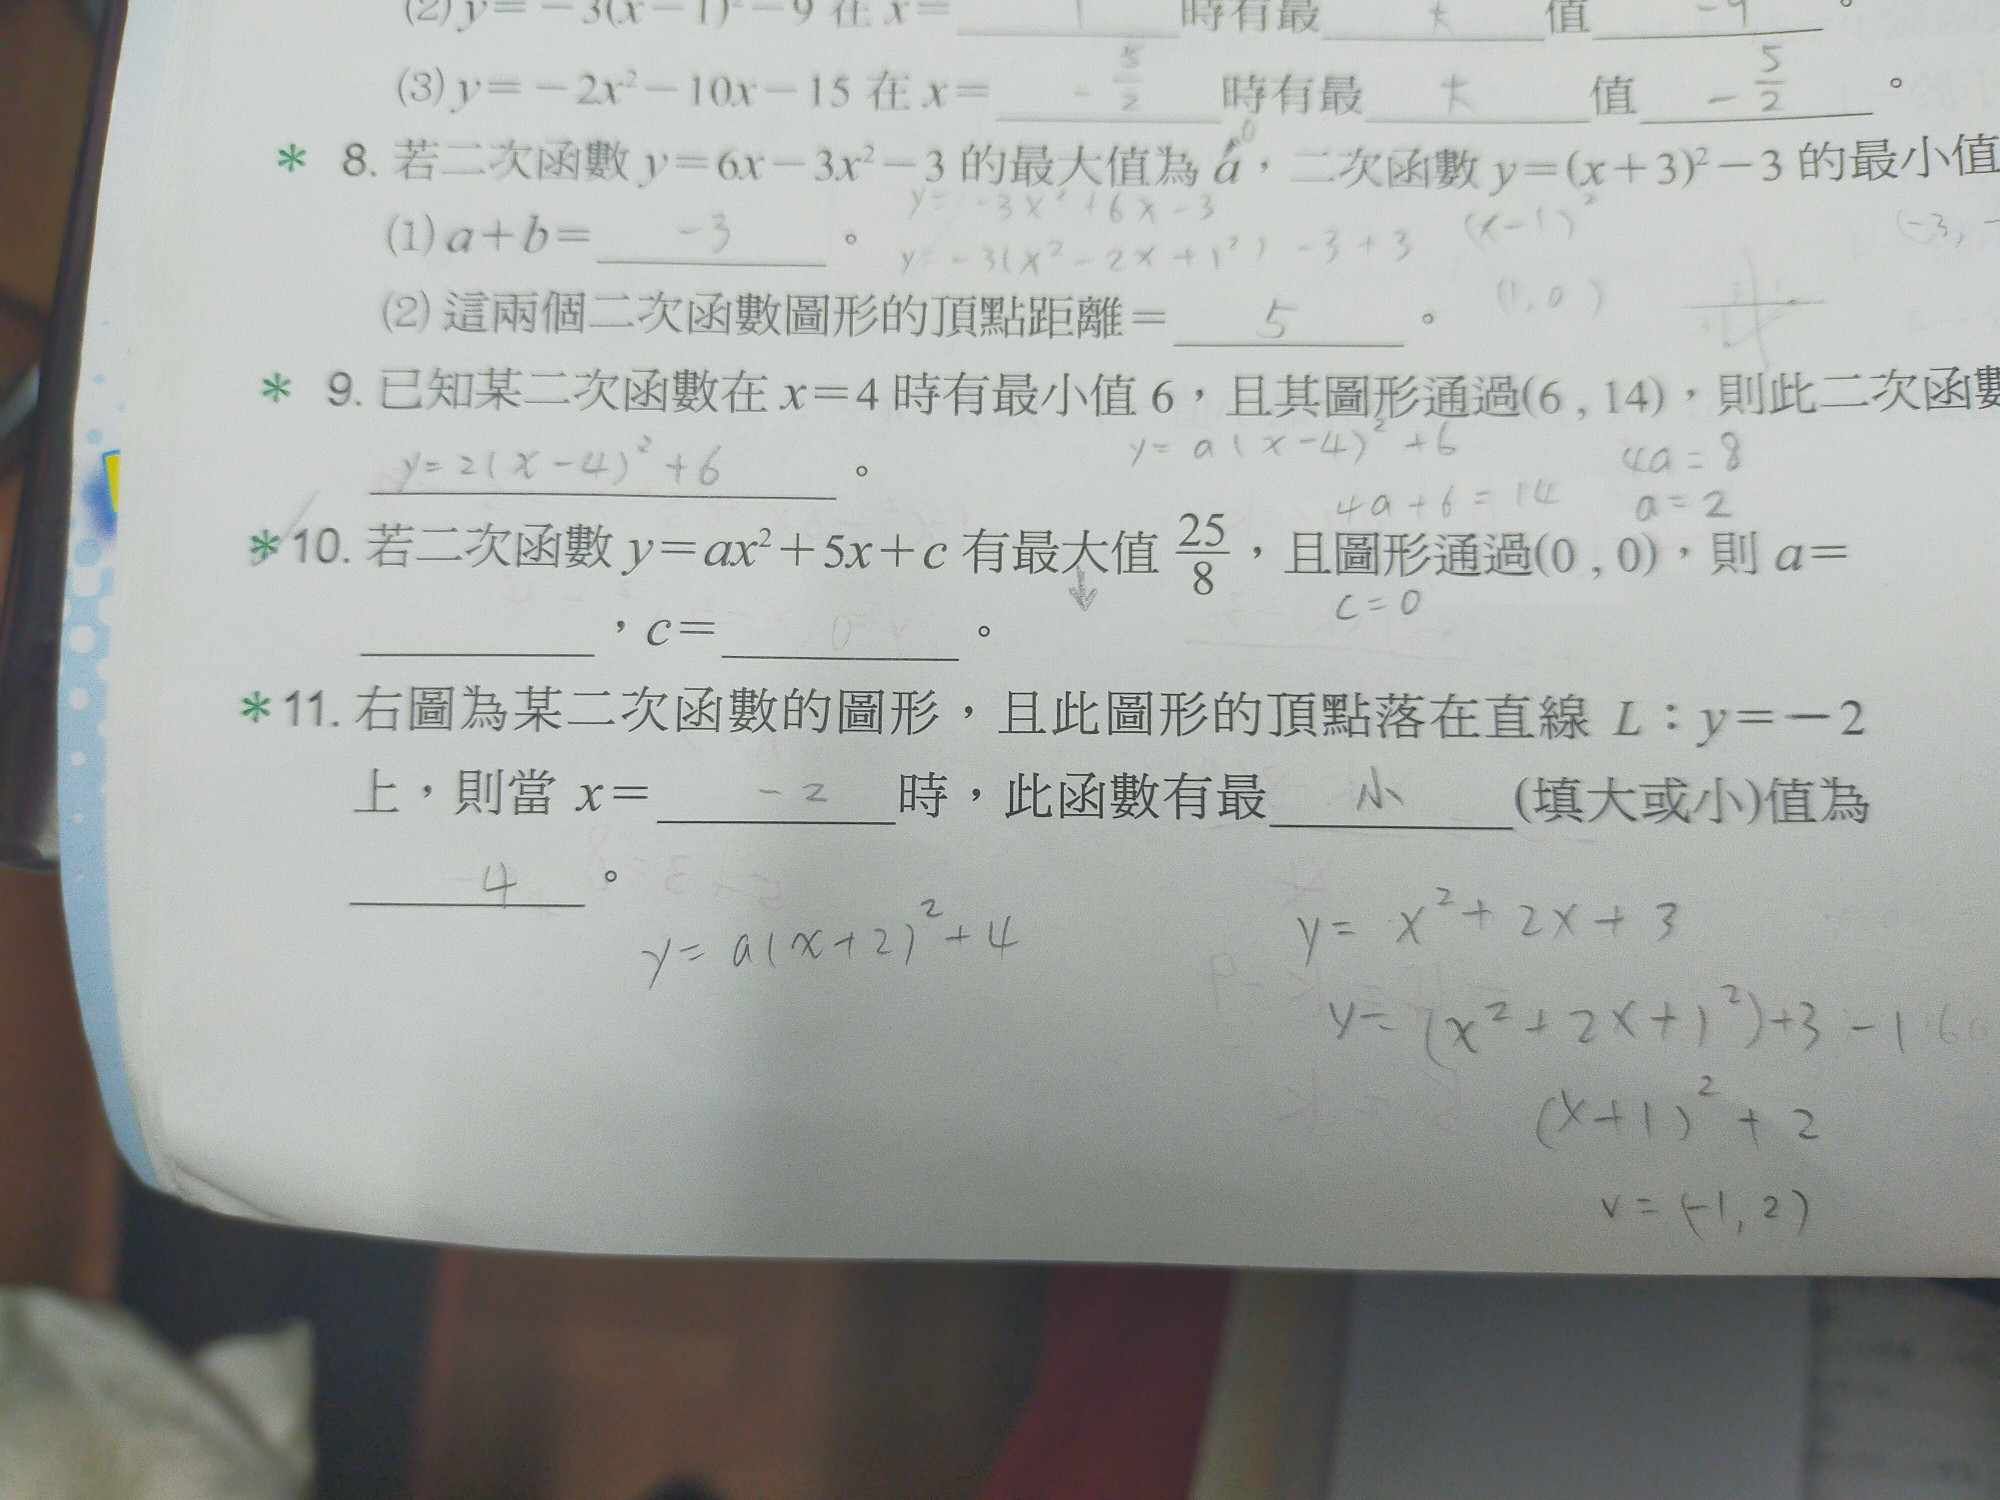 (2) y＝－3(x－1)²－9 在 x＝ 1 時有最 大 值 -9 。
(3) y＝－2x²－10x－15 在 x＝ -5/2 時有最 大 值 -5/2 。
＊ 8. 若二次函數 y＝6x－3x²－3 的最大值為 a，二次函數 y＝(x＋3)²－3 的最小值
0
y = -3x²+6x-3
(1) a＋b＝ -3 。
y = -3(x²-2x+1²)-3+3
(x-1)²
(-3, -
(2) 這兩個二次函數圖形的頂點距離＝ 5 。
(1,0)
＊ 9. 已知某二次函數在 x＝4 時有最小值 6，且其圖形通過(6 , 14)，則此二次函數
y=2(x-4)²+6 。
y= a(x-4)²+6
4a=8
4a+6=14
a=2
＊10. 若二次函數 y＝ax²＋5x＋c 有最大值 25/8，且圖形通過(0 , 0)，則 a＝
c=0
，c＝ 。
＊11. 右圖為某二次函數的圖形，且此圖形的頂點落在直線 L：y＝－2
上，則當 x＝ -2 時，此函數有最 小 (填大或小)值為
4 。
y= a(x+2)²+4
y= x²+2x+3
y= (x²+2x+1²)+3-1
(x+1)²+2
v=(-1,2)